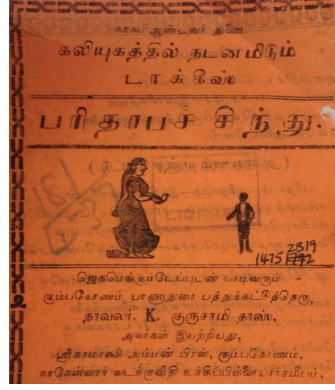 கலியுகத்தில் நடனமிடும்
டாக்கீஸ்
பரிதாபச் சிந்து.
2319
1475
ஜெகமெங்கும்டேப்புடன் பாடிவரும்
கும்பகோணம் பாணதுரை பத்துக்கட்டுத்தெரு,
நாவலர், K. குருசாமி தாஸ்,
அவர்கள் இயற்றியது,
ஸ்ரீகாமாக்ஷி அம்மன் பிரஸ், கும்பகோணம்,
நாகேஸ்வரர் வடக்குவீதி உச்சிப்பிள்ளையார்சமீபம்,